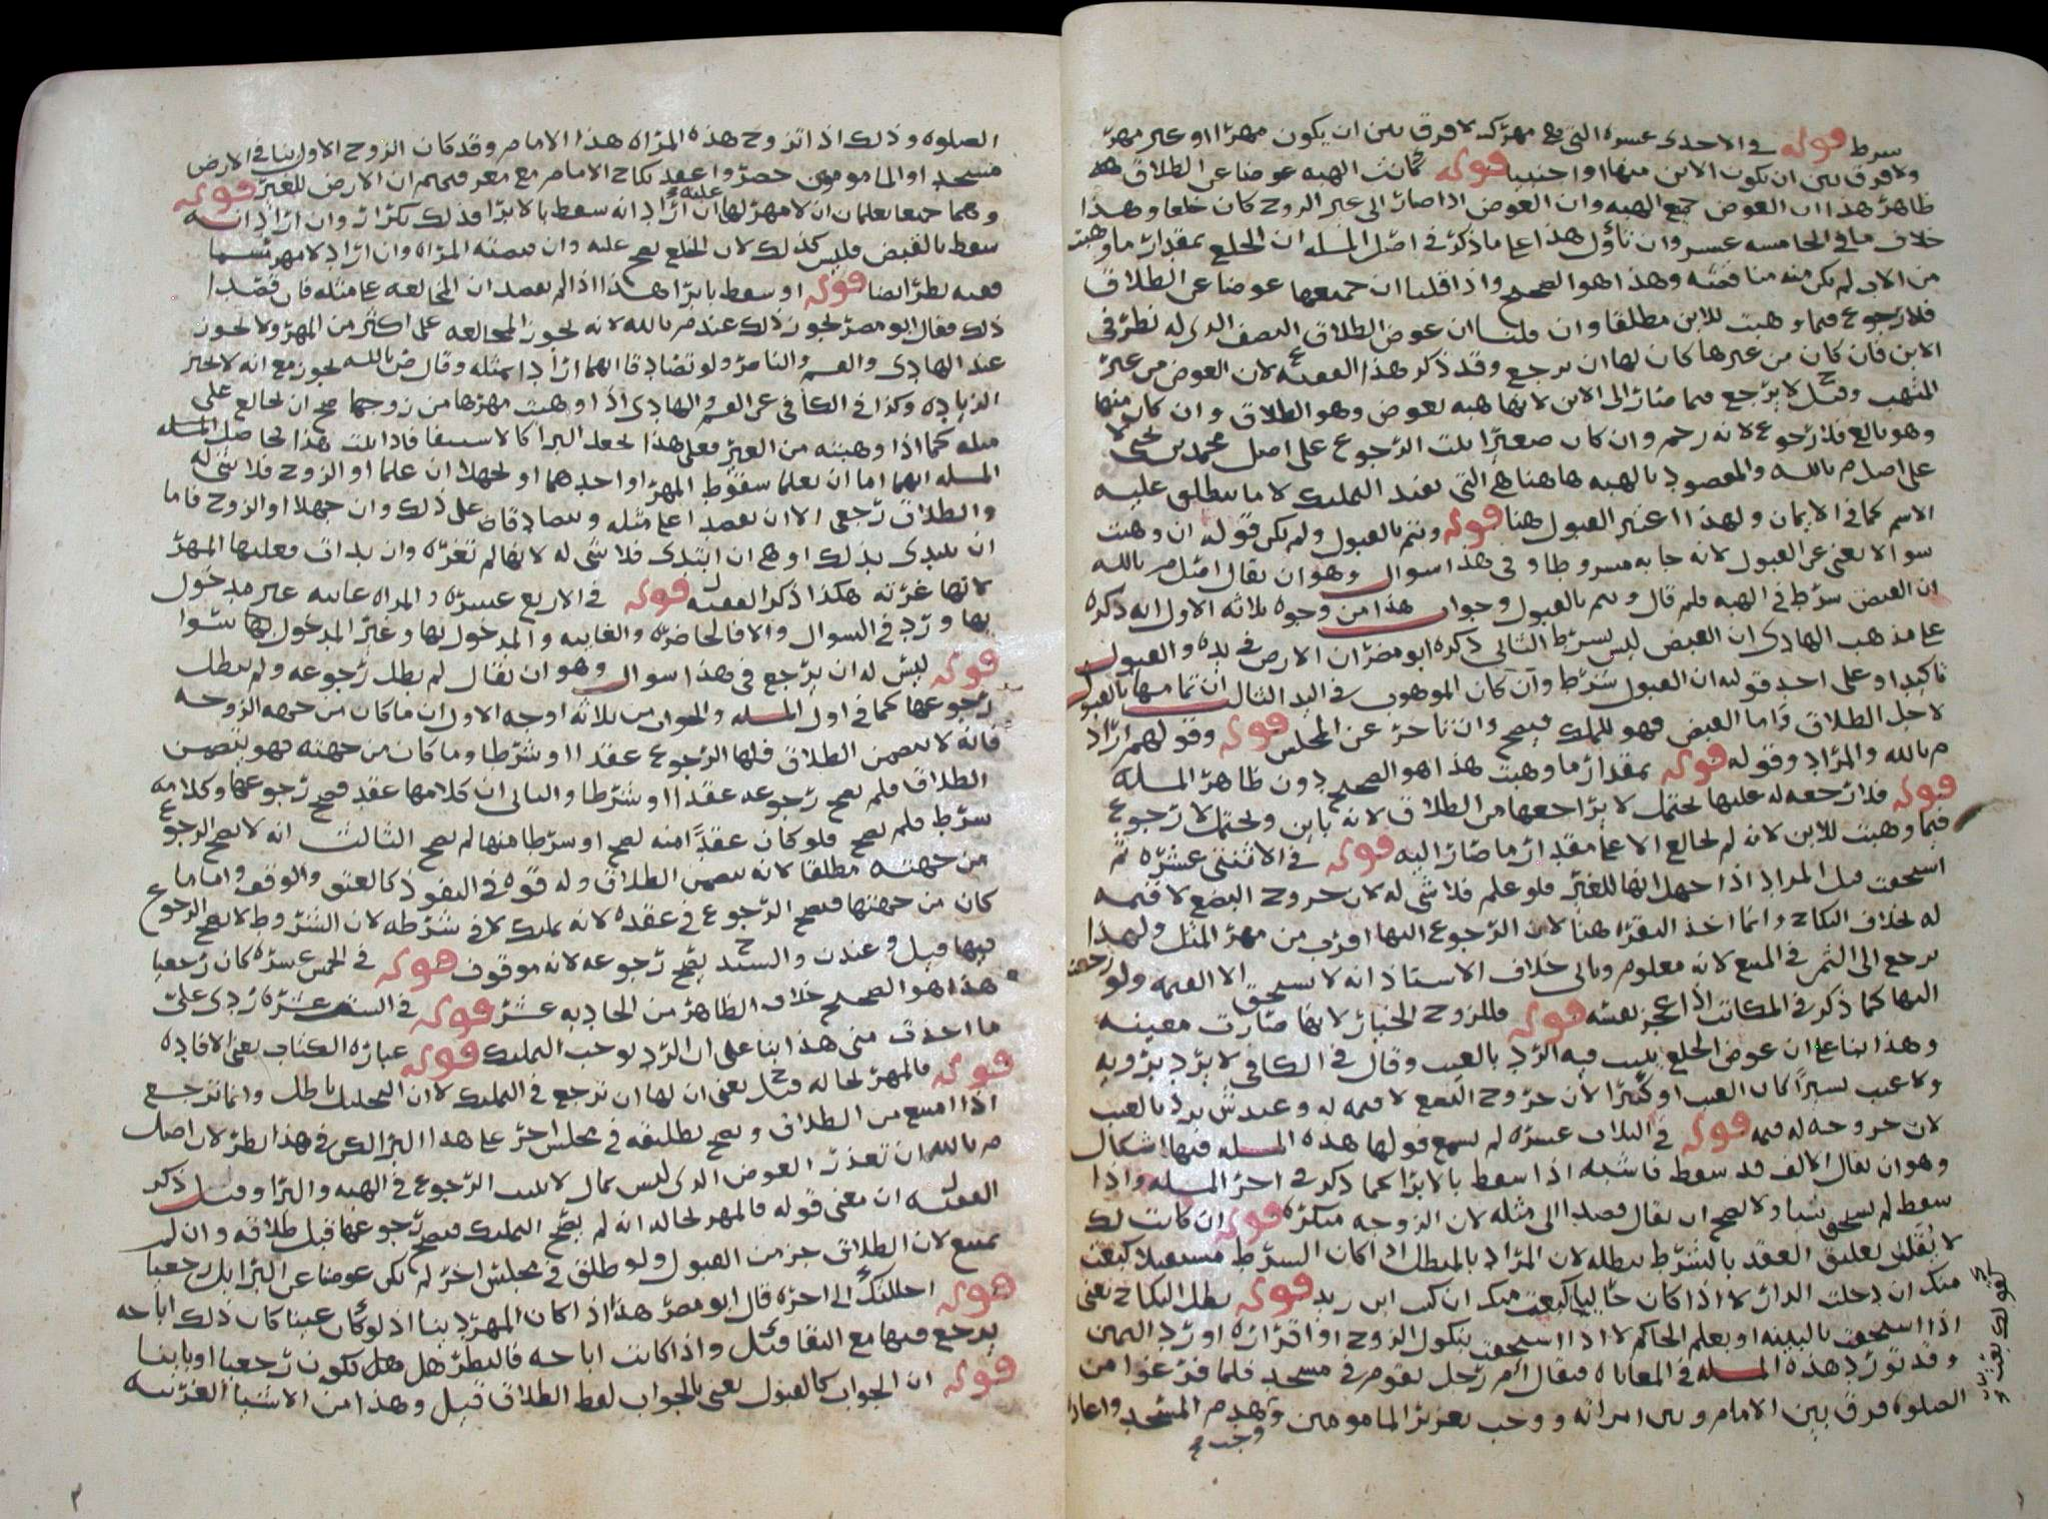 شرط قوله في الاحدى عشره التي مهرك لا فرق بين ان يكون مهرا او غير مهر
ولا فرق بين ان يكون الابن منها او اجنبيا قوله كانت الهبه عوضا عن الطلاق
ظاهر هذا ان العوض جميع الهبه وان العوض اذا صار الى غير الزوج كان خلعا وهذا
خلاف ما في الخامسه عشر وان تأول هذا على ما ذكر في اصل المسله ان الخلع بمقدار ما وهبت
من الاب لم يكن منه مناقضه وهذا هو الصحيح واذا قلنا ان جميعها عوضا عن الطلاق
فلا رجوع فيما وهبت للابن مطلقا وان قلنا ان عوض الطلاق النصف الذي له نظر في
الابن فان كان من غيرها كان لها ان ترجع وقد ذكر هذا الفقيه ع لان العوض من غير
المتهب وقيل لا يرجع فيما صار الى الابن لانها هبه بعوض وهو الطلاق وان كان منها
وهو بالغ فلا رجوع لانه رحم وان كان صغيرا ثبت الرجوع على اصل محمد بن يحيى لا
على اصل م بالله والمقصود بالهبه هاهنا هي التي تفيد التمليك لا ما ينطلق عليه
الاسم كما في الايمان ولهذا اعتبر القبول هنا قوله وتتم بالقبول ولم يكن قوله ان وهبت
سوالا يغني عن القبول لانه جا به مشروطا وفي هذا سوال وهو ان يقال اصل م بالله
ان القبض شرط في الهبه فلم قال وتتم بالقبول وجواب هذا من وجوه ثلاثه الاول انه ذكره
على مذهب الهادي ان القبض ليس بشرط الثاني ذكره ابو مضر ان الارض في يده والقبول
تاكيدا وعلى احد قوليه ان القبول شرط وان كان الموهوب في اليد الثالث ان تمامها بالقبول
لاجل الطلاق واما القبض فهو للملك فيصح وان تاخر عن المجلس قوله وقولهم اراد
م بالله والمراد وقوله قوله بمقدار ما وهبت هذا هو الصحيح دون ظاهر المسله
قوله فلا رجعه له عليها يحتمل لا يراجعها من الطلاق لانه باين ويحتمل لا رجوع
فيما وهبت للابن لانه لم يخالع الا على مقدار ما صار اليه قوله في الاثنتي عشره ثم
استحقت قيل المراد اذا جهل انها للغير فلو علم فلا شي له لان خروج البضع لا قيمه
له بخلاف النكاح وانما اخذ البقره هنا لان الرجوع اليها اقرب من مهر المثل ولهذا
يرجع الى الثمن في المبيع لانه معلوم وياتي خلاف الاستاذ انه لا يستحق الا القيمه ولو رجعت
اليها كما ذكر في المكاتب اذا عجز نفسه قوله فللزوج الخيار لانها صارت معيبه
وهذا بنا على ان عوض الخلع يثبت فيه الرد بالعيب وقال في الكافي لا يرد برويه
ولا عيب يسيرا كان العيب او كثيرا لان خروج البضع لا قيمه له وعند ش يرد بالعيب
لان خروجه له قيمه قوله في الثلاث عشره لم يسمع قولها هذه المسله فيها اشكال
وهو ان يقال الالف قد سقط فاشبه اذا سقط بالابرا كما ذكر في اخر المسله واذا
سقط لم يستحق شيا ولا يصح ان يقال قصدا الى مثله لان الزوجه منكره قوله ان كانت لك
لا يقال تعليق العقد بالشرط يبطله لان المراد بالمبطل اذا كان الشرط مستقبلا كبعت
منك ان دخلت الدار لا اذا كان حاليا كبعت منك ان كنت ابن زيد قوله بطل النكاح يعني
اذا استحقت بالبينه او بعلم الحاكم لا اذا استحقت بنكول الزوج او اقراره او رد اليمين
وقد تورد هذه المسله في المعاياه فيقال ام رجل بقوم في مسجد فلما فرغوا من
الصلوه فرق بين الامام وبين امراته ووجب تعزير المامومين وهدم المسجد واعادة
الصلوه وذلك اذا تزوج هذه المراه هذا الامام وقد كان الزوج الاول بنا في الارض
مسجد او المامومين حضروا عقد نكاح الامام مع معرفتهم ان الارض للغير قوله
وهما جميعا يعلمان ان لا مهر لها عليه ان اراد انه سقط بالابرا فذلك تكرار وان اراد انه
سقط بالقبض فليس كذلك لان الخلع يصح عليه وان قبضته المراه وان اراد لا مهر مسما
ففيه نظر ايضا قوله او سقط بابرا هذا اذا لم يقصد ان المخالعه على مثله فان قصدا
ذلك فقال ابو مضر يجوز ذلك عند م بالله لانه يجوز المخالعه على اكثر من المهر ولا يجوز
عند الهادي والقسم والناصر ولو تصادقا انهما ارادا مثله وقال ض بالله يجوز مع انه لا يجيز
الزياده وكذا في الكافي عن القسم والهادي اذا وهبت مهرها من زوجها صح ان يخالع على
مثله كما اذا وهبته من الغير فعلى هذا يجعل البرا كالاستيفا فاذا ثبت هذا فحاصل المسله
المسله انهما اما ان يعلما سقوط المهر او احدهما او يجهلا ان علما او الزوج فلا شي له
والطلاق رجعي الا ان يقصدا على مثله ويتصادقان على ذلك وان جهلا او الزوج فاما
ان يبتدي بذلك او هي ان ابتدى فلا شي له لانها لم تغره وان بدات فعليها المهر
لانها غرته هكذا ذكر الفقيه ل قوله في الاربع عشره والمراه غايبه غير مدخول
بها ورد في السوال والا فالحاضره والغايبه والمدخول بها وغير المدخول بها سوا
قوله ليس له ان يرجع في هذا سوال وهو ان يقال لم بطل رجوعه ولم يبطل
رجوعها كما في اول المسله والجواب من ثلاثه اوجه الاول ان ما كان من جهه الزوجه
فانه لا يتضمن الطلاق فلها الرجوع عقدا او شرطا وما كان من جهته فهو يتضمن
الطلاق فلم يصح رجوعه عقدا او شرطا والثاني ان كلامها عقد فصح رجوعها وكلامه
شرط فلم يصح فلو كان عقدا منه لصح او شرطا منها لم يصح الثالث انه لا يصح الرجوع
من جهته مطلقا لانه يتضمن الطلاق وله قوه في النفوذ كالعتق والوقف واما ما
كان من جهتها فيصح الرجوع في عقده لانه تمليك لا في شرطه لان الشروط لا يصح الرجوع
فيها قيل وعند ن والسيد ح يصح رجوعه لانه موقوف قوله في الخمس عشره كان رجعيا
هذا هو الصحيح خلاف الظاهر من الحاديه عشر قوله في الست عشره ردي علي
ما اخذت مني هذا بنا على ان الرد يوجب التمليك قوله عباره الكتاب يعني الافاده
قوله فالمهر بحاله قيل ح يعني ان لها ان ترجع في التمليك لان التحليل باطل وانما ترجع
اذا امتنع من الطلاق ويصح تطليقه في مجلس اخر على هذا البرا لكن في هذا نظر لان اصل
م بالله ان تعذر العوض الذي ليس بمال لا يثبت الرجوع في الهبه والبرا وقيل ذكر
الفقيه ل ان معنى قوله فالمهر بحاله انه لم يصح التمليك فيصح رجوعها قبل طلاقه وان لم
يمتنع لان الطلاق جز من القبول ولو طلق في مجلس اخر لم يكن عوضا عن البرا بل رجعيا
قوله احللتك الى اخره قال ابو مضر هذا اذا كان المهر دينا اذ لو كان عينا كان ذلك اباحه
يرجع فيها مع البقا وقيل واذا كانت اباحه فالنظر هل يكون رجعيا او باينا
قوله ان الجواب كالقبول يعني بالجواب لفظ الطلاق قيل وهذا من الاشيا الغريبه